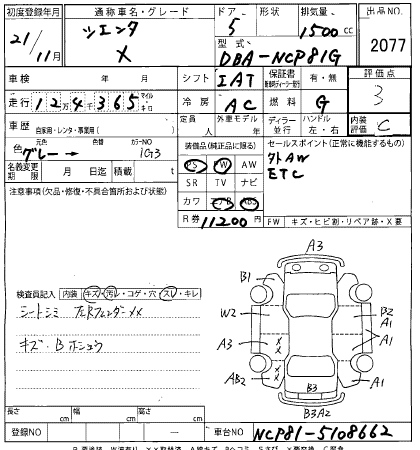 初度登録年月 通称車名・グレード ドア 形状 排気量 出品NO
21/11月 シエンタ X 5 1500cc 2077
型式 DBA-NCP81G
車検 年 月 シフト IAT 保証書 有・無 評価点 3
走行 124365 マイル キロ 冷房 AC 燃料 G
車歴 自家用・レンタ・事業用( ) 定員 人 外車モデル 年 ディーラー 並行 ハンドル 左・右 内装評価 C
色 元色 グレー→ 色替 カラーNO 1G3
装備品(純正品に限る) セールスポイント(正常に機能するもの)
PS PW AW
外AW
SR TV ナビ
ETC
名義変更期限 月 日迄 積載 t
カワ エアB ABS
注意事項(欠品・修復・不具合箇所および状態)
R券 11200円 FW キズ・ヒビ割・リペア跡・X要
検査員記入 内装 キズ・汚レ・コゲ・穴・スレ・キレ
シートシミ 左Rフェンダー XX
キズ・B ホシュウ
A3
B1
W2 B2
A1
A3 XX
AB2 XX A1
B3
B3A2
長さ cm 幅 cm 高さ cm
登録NO ー 車台NO NCP81-5108662